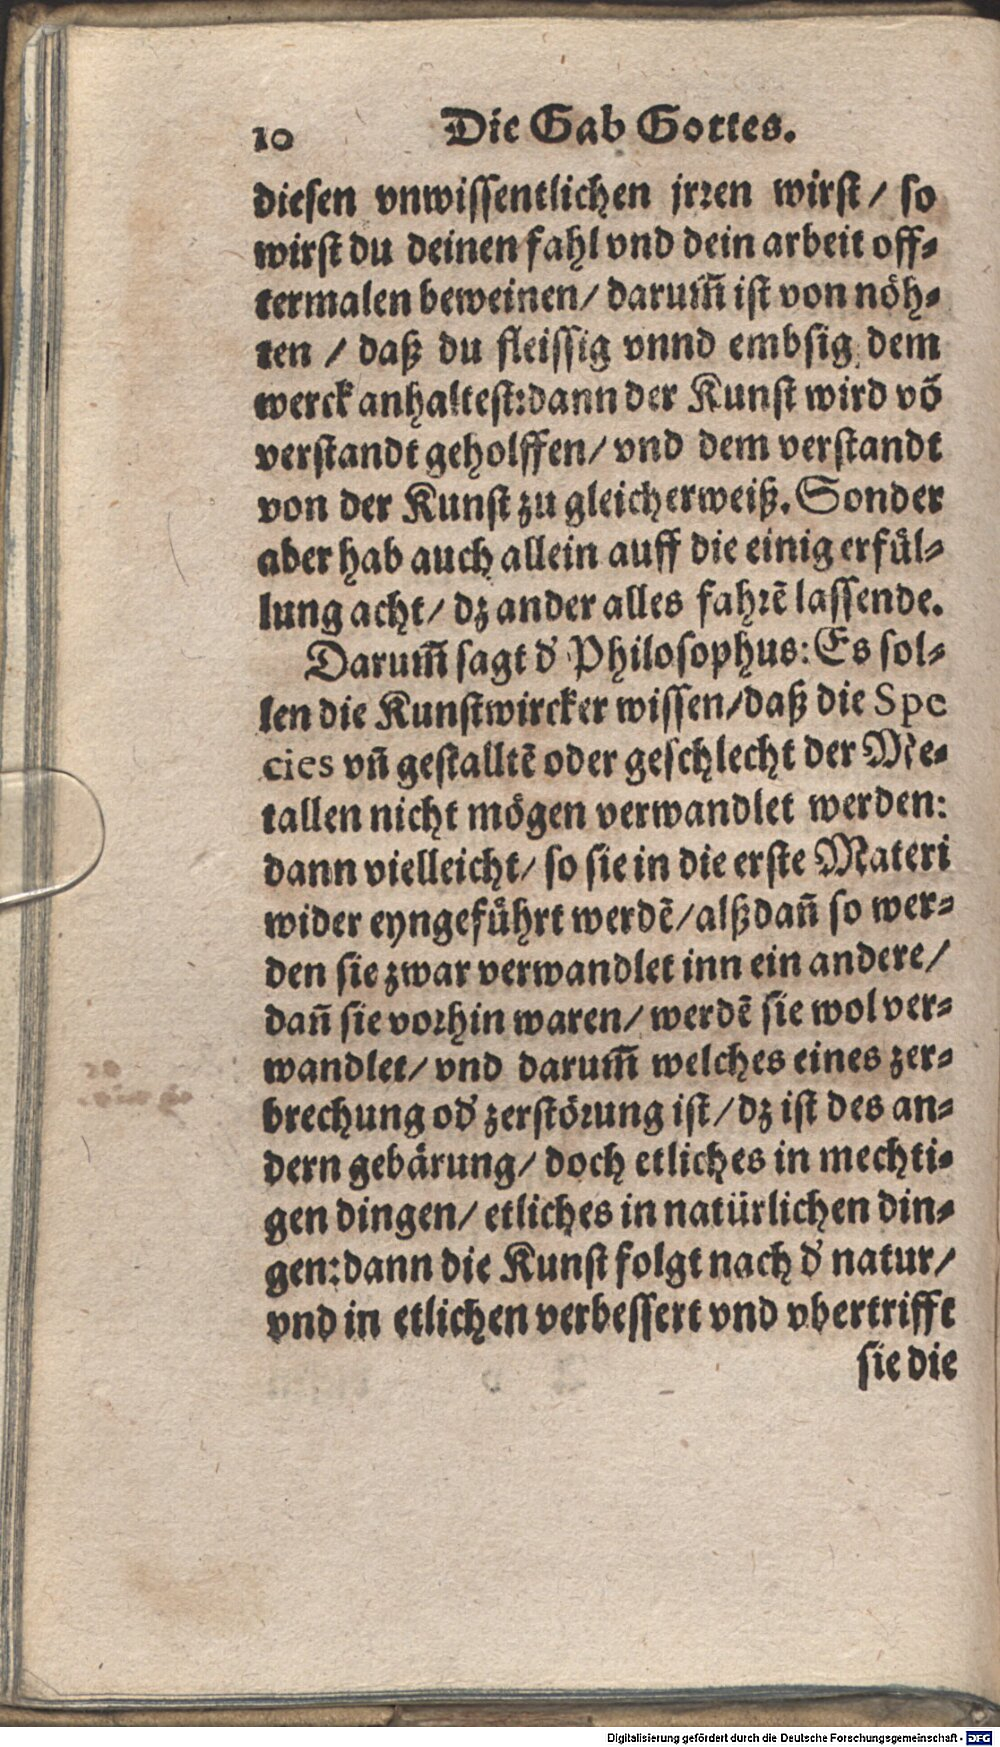 10 Die Gab Gottes.
diesen vnwissentlichen jrren wirst / so
wirst du deinen fahl vnd dein arbeit off-
termalen beweinen / darum̃ ist von nöh-
ten / daß du fleissig vnnd embsig dem
werck anhaltest: dann der Kunst wird võ
verstandt geholffen / vnd dem verstandt
von der Kunst zu gleicherweiß. Sonder
aber hab auch allein auff die einig erfül-
lung acht / dz ander alles fahrẽ lassende.
Darum̃ sagt d' Philosophus: Es sol-
len die Kunstwircker wissen / daß die Spe
cies vñ gestalltẽ oder geschlecht der Me-
tallen nicht mögen verwandlet werden:
dann vielleicht / so sie in die erste Materi
wider eyngeführt werdẽ / alßdañ so wer-
den sie zwar verwandlet inn ein andere /
dañ sie vorhin waren / werdẽ sie wol ver-
wandlet / vnd darum̃ welches eines zer-
brechung od' zerstörung ist / dz ist des an-
dern gebärung / doch etliches in mechti-
gen dingen / etliches in natürlichen din-
gen: dann die Kunst folgt nach d' natur /
vnd in etlichen verbessert vnd vbertrifft
sie die
Digitalisierung gefördert durch die Deutsche Forschungsgemeinschaft - DFG